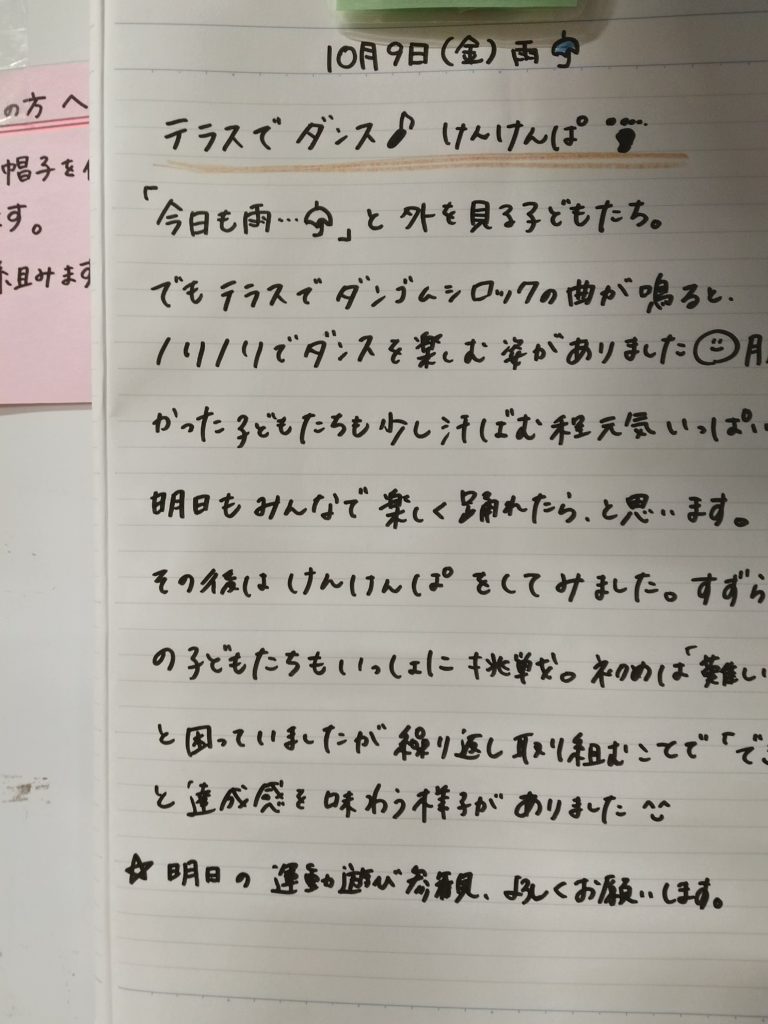 10月9日(金)雨☂
テラスでダンス♪ けんけんぱ👣
「今日も雨…☂」と外を見る子どもたち。
でもテラスでダンゴムシロックの曲が鳴ると、
ノリノリでダンスを楽しむ姿がありました☺月
かった子どもたちも少し汗ばむ程元気いっぱい
明日もみんなで楽しく踊れたら、と思います。
その後はけんけんぱをしてみました。すずら
の子どもたちもいっしょに挑戦を。初めは「難しい
と困っていましたが繰り返し取り組むことで「でき
と達成感を味わう様子がありました^^
☆明日の運動遊び参観、よろしくお願いします。
の方へ
帽子を
ます。
組みます